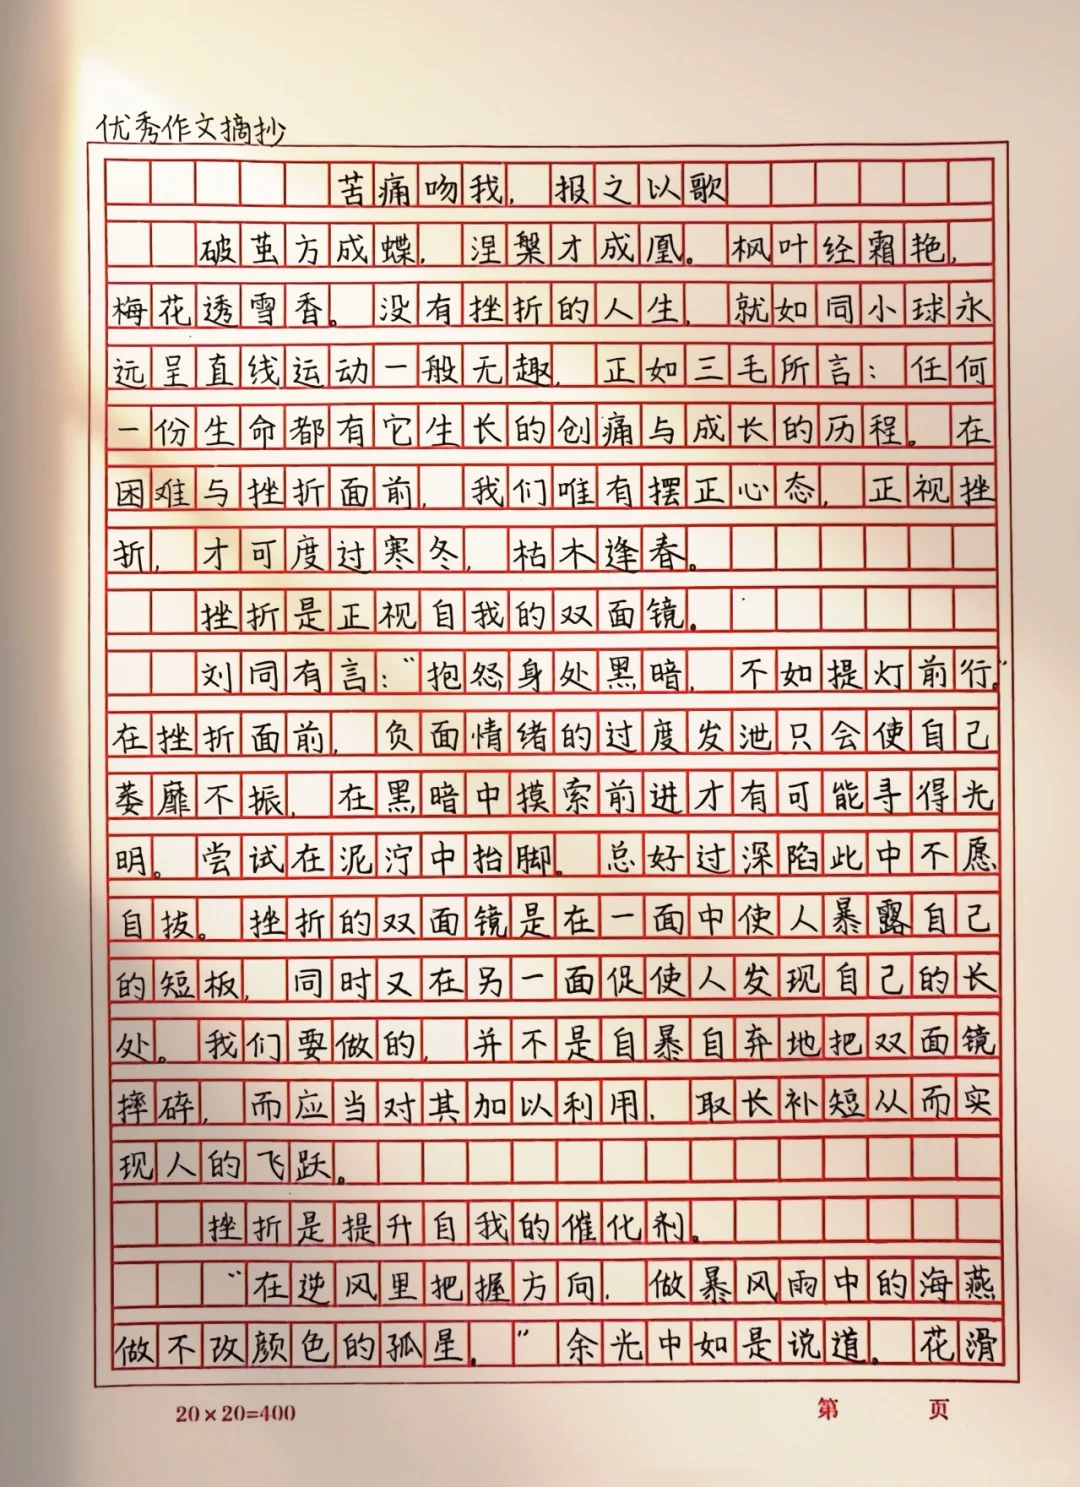 优秀作文摘抄
苦痛吻我，报之以歌
破茧方成蝶，涅槃才成凰。枫叶经霜艳，
梅花透雪香。没有挫折的人生，就如同小球永
远呈直线运动一般无趣，正如三毛所言：任何
一份生命都有它生长的创痛与成长的历程。在
困难与挫折面前，我们唯有摆正心态，正视挫
折，才可度过寒冬，枯木逢春。
挫折是正视自我的双面镜。
刘同有言：“抱怨身处黑暗，不如提灯前行。”
在挫折面前，负面情绪的过度发泄只会使自己
萎靡不振，在黑暗中摸索前进才有可能寻得光
明。尝试在泥泞中抬脚。总好过深陷此中不愿
自拔。挫折的双面镜是在一面中使人暴露自己
的短板，同时又在另一面促使人发现自己的长
处。我们要做的，并不是自暴自弃地把双面镜
摔碎，而应当对其加以利用，取长补短从而实
现人的飞跃。
挫折是提升自我的催化剂。
“在逆风里把握方向，做暴风雨中的海燕
做不改颜色的孤星。”余光中如是说道。花滑
20×20=400
第 页